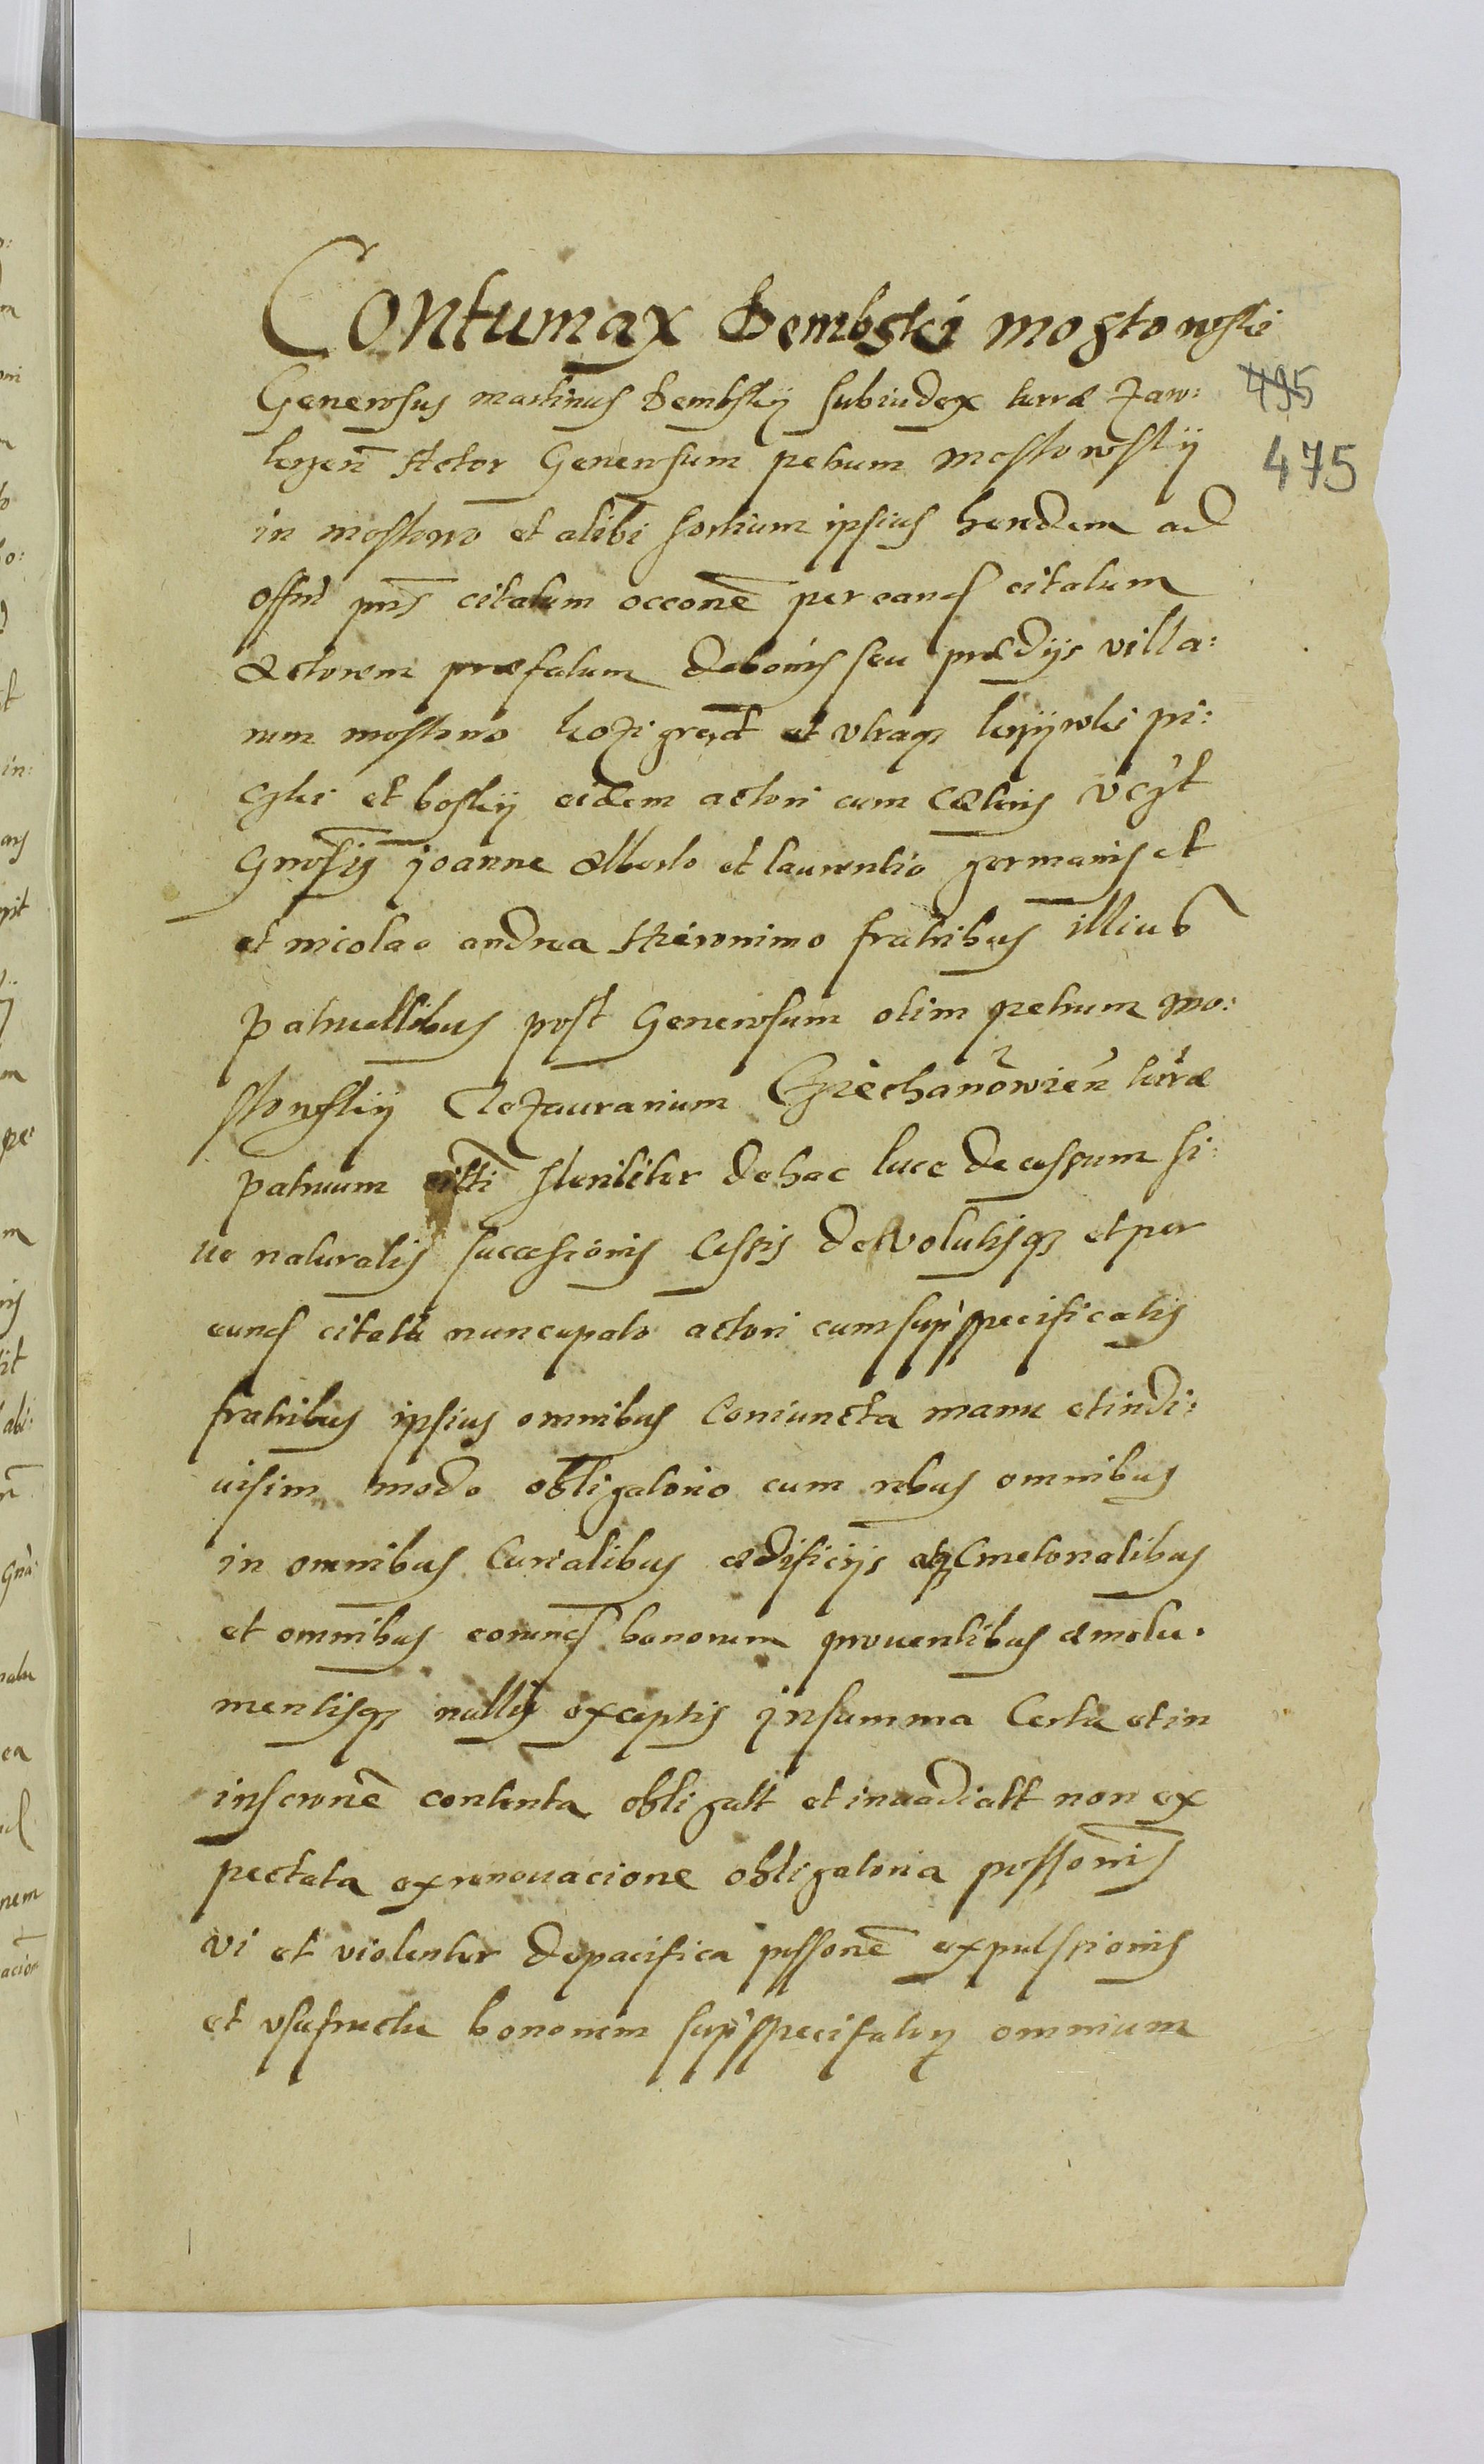 Contumax Dembski Mostowski
Generosus martinus dembskij subiudex terræ Zaw:
495
kzen̄ Actor Generosum petrum mostowskij
475
in mostowo et alibi sortium ipsius hæredem ad
offm̄ pns̄ citatum occonē per eund citatum
actorem præfatum de bonis seu prædijs villa:
rum mostowo et vtraq
et eidem actori cum cæteris vczt
Gnosis joanne alberto et laurentio germanis et
et nicolao andrea Hieronimo fratribus illius
patruelibus post Generosum olim petrum mo:
stowskij Thezaurarium Cziechanowien̄ terræ
patruum steriliter de hac luce decessum si:
ue naturalis successionis cessis devolutisq et per
eund citatū nuncupato actori cum sup specificatis
fratribus ipsius omnibus coniuncta manu et indi:
uisim modo obligatorio cum rebus omnibus
in omnibus curialibus ædificijs atq cmetonalibus
et omnibus eorund bonorum prouentibus æmolu:
mentisq nullis exceptis in summa certa et in
inscronē contenta obligatt et inuadiatt non ex
pectata exrenouacione obligatoria possonis
vi et violenter de pacifica possonē expulsionis
et vsufructu bonorum sup specifator omnium